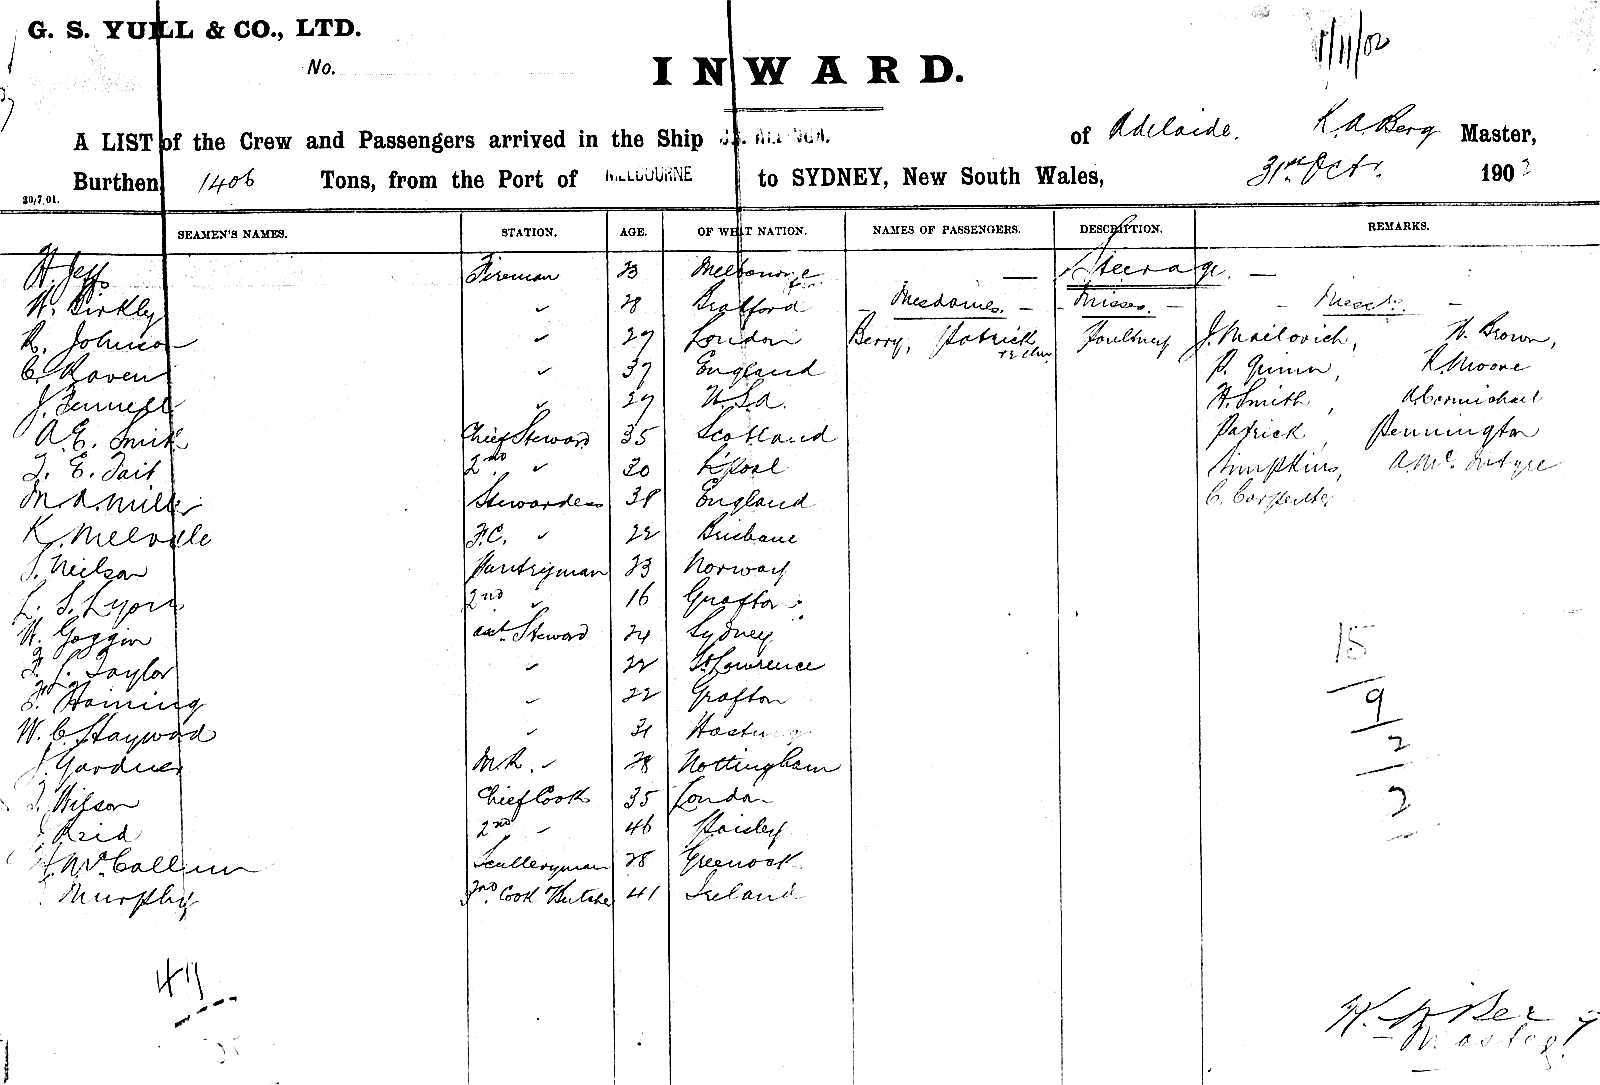 G. S. YUILL & CO., LTD.
1/11/02
No.
INWARD.
A LIST of the Crew and Passengers arrived in the Ship of Adelaide. K. A. Berg Master,
Burthen 1406 Tons, from the Port of MELBOURNE to SYDNEY, New South Wales, 31st Octr. 190
30/7/01.
SEAMEN'S NAMES. STATION. AGE. OF WHAT NATION. NAMES OF PASSENGERS. DESCRIPTION. REMARKS.
H. Jeffs Fireman 23 Melbourne — Steerage. —
W. Birkley " 28 Bratford — Mesdames. — Misses. — Messrs. —
R. Johnson " 27 London Berry, Patrick Poultney J. Mailovich, W. Brown,
C. Raven " 37 England P. Quinn, R. Moore
J. Fennell " 27 U.S.A. H. Smith, A Carmichael
A. E. Smith Chief Steward 35 Scotland Patrick, Pennington
T. E. Tait 2nd " 30 L'pool Simpkins, A McIntyre
M. A. Miller Stewardess 38 England C. Carpenter
K. Melville F.C. " 22 Brisbane
Neilson Pantryman 23 Norway
L. S. Lyons 2nd " 16 Grafton
W. Goggin asst. Steward 24 Sydney 15
Taylor " 22 St Lawrence
Haining " 22 Grafton 9
W. C. Hayward " 31 2
J. Gardner M.R. " 28 Nottingham
Wilson Chief Cook 35 London 2
Reid 2nd " 46 Paisley
McCallum Sculleryman 28 Greenock
Murphy 3rd. Cook & Butcher 41 Ireland
47
K. A. Berg
Master